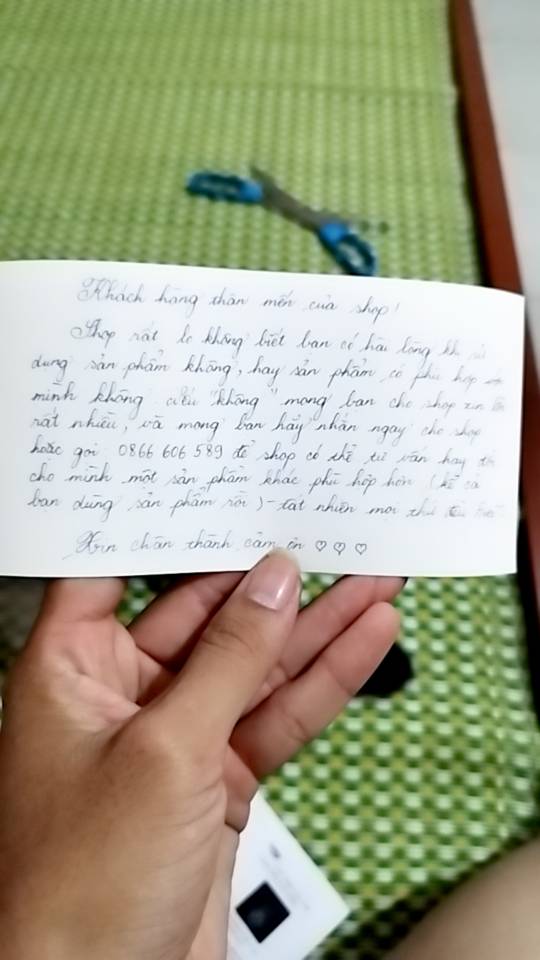 Khách hàng thân mến của shop!
Shop rất lo không biết bạn có hài lòng khi sử
dụng sản phẩm không, hay sản phẩm có phù hợp với
mình không. Nếu "không" mong bạn cho shop xin lỗi
rất nhiều, và mong bạn hãy nhắn ngay cho shop
hoặc gọi 0866 606 589 để shop có thể tư vấn hay đổi
cho mình một sản phẩm khác phù hợp hơn (kể cả
bạn dùng sản phẩm rồi) - tất nhiên mọi thứ đều
Xin chân thành cảm ơn ♡ ♡ ♡